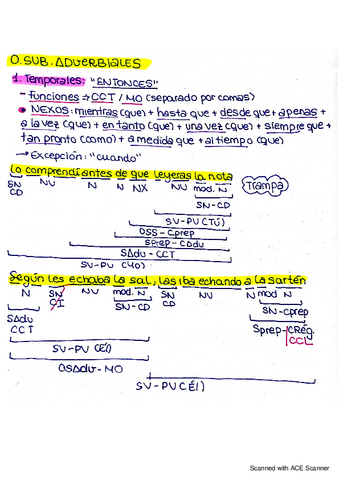 O. SUB. ADVERBIALES
1. Temporales: "ENTONCES"
- Funciones → CCT / MO (separado por comas)
• NEXOS: mientras (que) + hasta que + desde que + apenas +
a la vez (que) + en tanto (que) + una vez (que) + siempre que +
tan pronto (como) + a medida que + al tiempo (que)
→ Excepción: "cuando"
Lo comprendí antes de que leyeras la nota
SN NV N N NX NV mod. N Trampa
CD SN-CD
SV-PV (TÚ)
OSS-Cprep
SPrep-CAdv
SAdv-CCT
SV-PV (YO)
Según les echaba la sal, las iba echando a la sartén
N SN NV mod. N SN NV N mod N
CI SN-CD CD SN-cprep
SAdv Sprep-CRég
CCT CCL
SV-PV (ÉL)
OSAdv-MO
SV-PV (ÉL)
Scanned with ACE Scanner